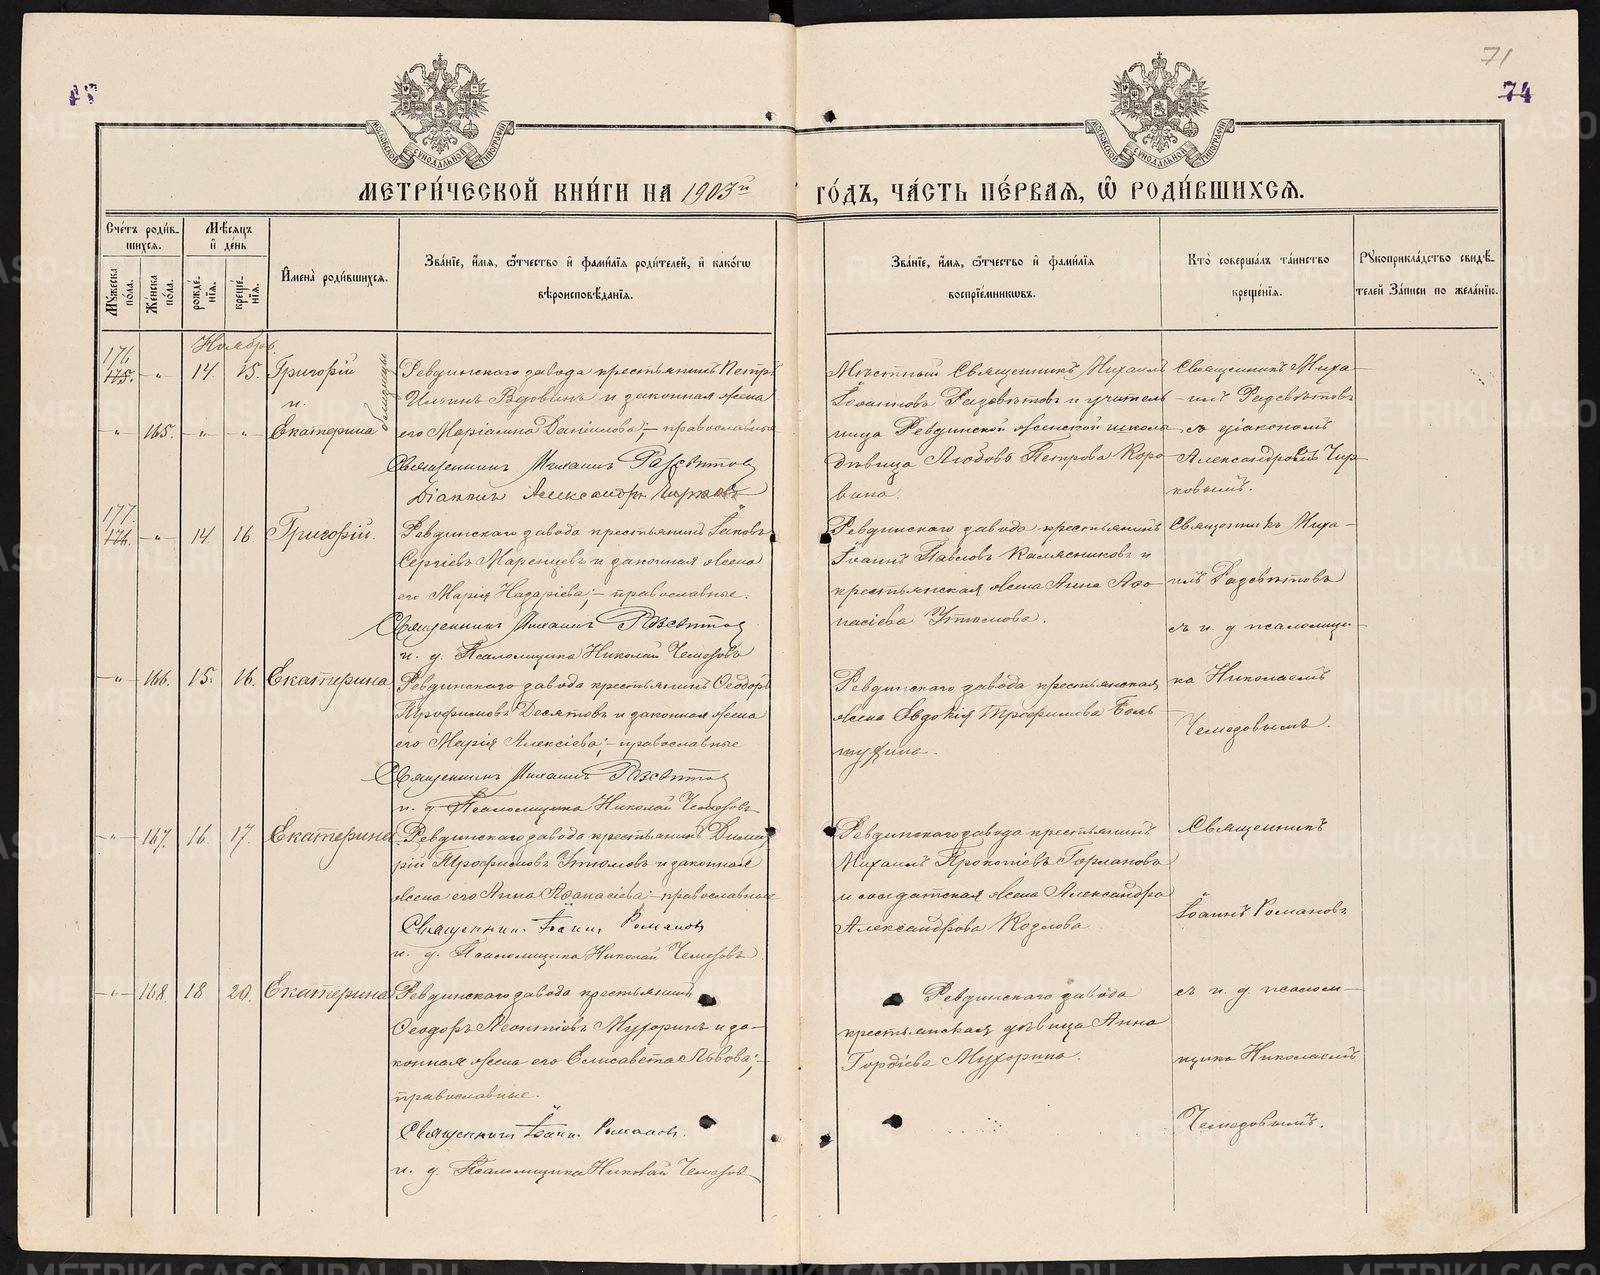 71
74
МЕТРИ́ЧЕСКОЙ КНИ́ГИ НА 1903й ГО́ДЪ, ЧА́СТЬ ПЕ́РВАЯ, Ѡ РОДИ́ВШИХСЯ.
Сче́тъ роди́в-
шихся.
Мѣ́сяцъ
и де́нь
Мужеска по́ла.
Же́нска по́ла.
рожде́-
нїя.
креще́-
нїя.
Имена̀ роди́вшихся.
Зва́нїе, и́мя, ѻ́тчество и фами́лїя роди́телей, и како́гѡ
вѣроисповѣ́данїя.
Зва́нїе, и́мя, ѻ́тчество и фами́лїя
воспрїе́мникωвъ.
Кто̀ соверша́лъ та́инство
креще́нїя.
Рукоприкла́дство свидѣ́-
телей За́писи по жела́нїю.
Ноябрь.
176
175. " 14 15. Григорій
и
близнецы
" 165. " " Екатерина
Ревдинскаго завода крестьянинъ Петръ
Ильинъ Вдовинъ и законная жена
его Маріамна Даніилова; – православные
Священникъ Михаилъ Разсвѣтовъ
Діаконъ Александръ Чирковъ
Мѣстный Священникъ Михаилъ
Іоанновъ Разсвѣтовъ и учитель-
ница Ревдинской женской школы
дѣвица Любовь Петрова Коро-
вина.
Священникъ Миха-
илъ Разсвѣтовъ
съ діакономъ
Александромъ Чир-
ковымъ.
177
176. " 14 16. Григорій.
Ревдинскаго завода крестьянинъ Іаковъ
Сергіевъ Маренцевъ и законная жена
его Марія Назаріева; – православные.
Священникъ Михаилъ Разсвѣтовъ
и. д. Псаломщика Николай Чемезовъ
Ревдинскаго завода крестьянинъ
Іоаннъ Павловъ Калясниковъ и
крестьянская жена Анна Аѳа-
насіева Утюмова.
Священникъ Миха-
илъ Разсвѣтовъ
съ и. д псаломщи-
ка Николаемъ
Чемезовымъ.
" 166. 15. 16. Екатерина
Ревдинскаго завода крестьянинъ Ѳеодоръ
Трофимовъ Десятовъ и законная жена
его Марія Алексіева; – православные
Священникъ Михаилъ Разсвѣтовъ
и. д. Псаломщика Николай Чемезовъ
Ревдинскаго завода крестьянская
жена Евдокія Трофимова Боль-
" 167. 16. 17. Екатерина
Ревдинскаго завода крестьянинъ Димит-
рій Трофимовъ Утюмовъ и законная
жена его Анна Аѳанасіева; – православные
Священникъ Іоаннъ Романовъ
и. д. Псаломщика Николай Чемезовъ
Ревдинскаго завода крестьянинъ
Михаилъ Прокопіевъ Горлановъ
и солдатская жена Александра
Александрова Козлова
Священникъ
Іоаннъ Романовъ
съ и. д. псалом-
щика Николаемъ
Чемезовымъ.
" 168. 18 20. Екатерина
Ревдинскаго завода крестьянинъ
Ѳеодоръ Леонтіевъ Мухоринъ и за-
конная жена его Елисавета Львова; –
православные.
Священникъ Іоаннъ Романовъ.
и. д. Псаломщика Николай Чемезовъ
Ревдинскаго завода
крестьянская дѣвица Анна
Гордіева Мухорина.